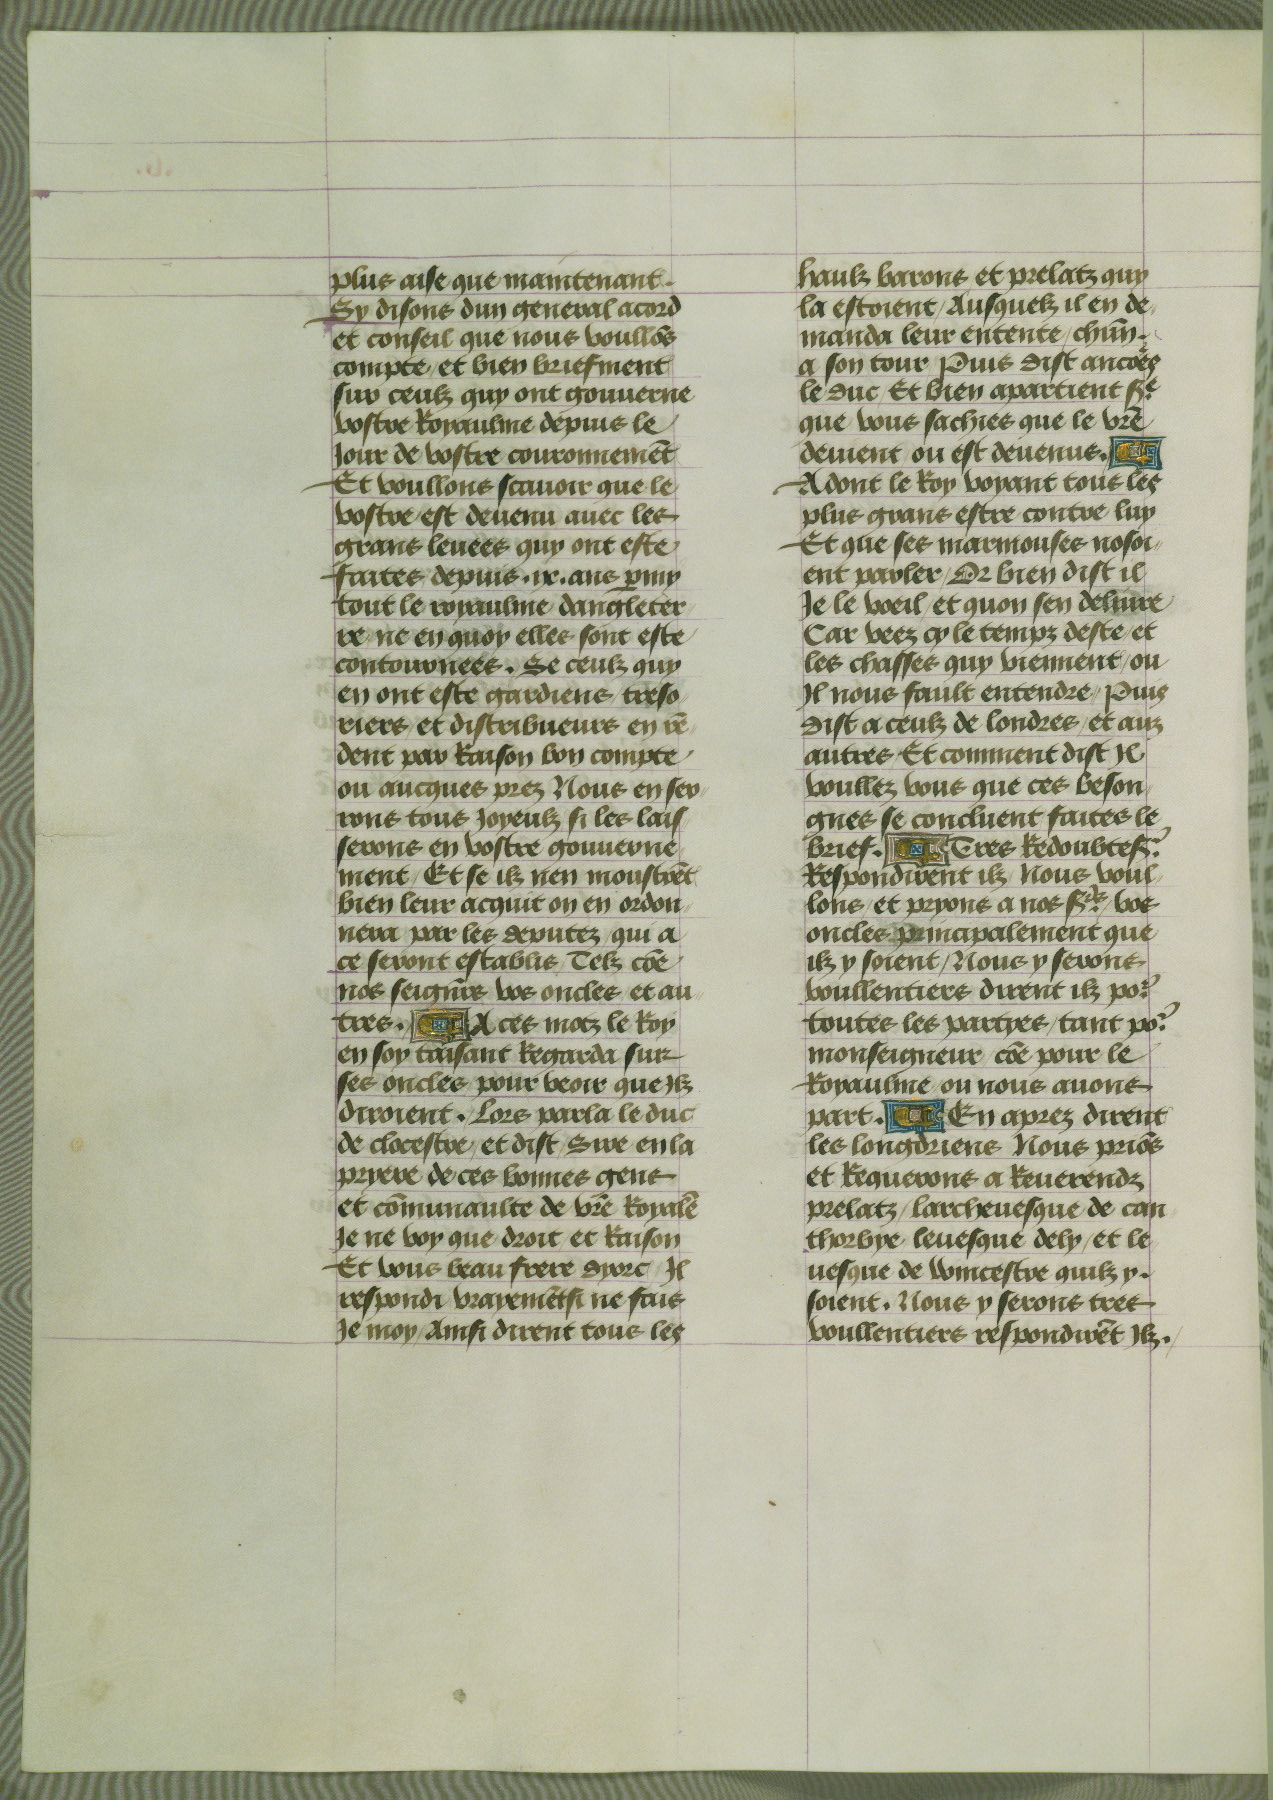 plus aise que maintenant.
Sy disons dun general acord
et conseil que nous voullōs
compte / et bien briefment
sur ceulz quy ont gouverne
vostre Royaulme depuis le
Jour de vostre couronnemēt
Et voullons scavoir que le
vostre est devenu avec les
grans levees quy ont este
faites depuis .ix. ans pmy
tout le royaulme dangleter
re / ne en quoy elles sont este
contournees. Se ceulz quy
en ont este gardiens / treso
riers et distribueurs en rē
dent par Raison bon compte
ou aucques prez Nous en ser
rons tous Joyeulz si les lais
serons en vostre gouverne
ment / Et se ilz nen moustrēt
bien leur acquit on en ordon
nera par les deputez qui a
ce seront establis / Telz cōe
nos seignr̄s vos oncles et au
tres. A ces motz le Roy
en soy taisant Regarda sur
ses oncles pour veoir que Ilz
diroient. Lors parla le duc
de clocestre / et dist / Sire en la
pryere de ces bonnes gens
et cōmunaulte de vr̄e Royalē
Je ne voy que droit et Raison
Et vous beau frere dyorc / Il
respondi vrayemēt si ne fais
Je moy / Ainsi dirent tous les
haulz barons et prelatz quy
la estoient / Ausquelz il en de
manda leur entente / chūn.
a son tour Puis dist ancoēs
le duc / Et bien apartient sʳᵉ
que vous sachies que le vr̄e
devient ou est devenus.
Adont le Roy voyant tous les
plus grans estre contre luy
Et que ses marmouses nosoi
ent parler / Or bien dist il
Je le voeil / et quon sen delivre
Car veez cy le tempz deste / et
les chasses quy viennent / ou
Il nous fault entendre / Puis
dist a ceulz de londres / et auz
autres / Et comment dist Il
voullez vous que ces beson
gnes se concluent faites le
brief. Tres Redoubte sʳ
Respondirent ilz / Nous voul
lons / et pryons a nos sʳˢ vos
oncles principalement que
ilz y soient / Nous y serons
voullentiers dirent ilz poʳ
toutes les partyes / tant poʳ
monseigneur cōe pour le
Royaulme / ou nous avons
part. En aprez dirent
les longdriens Nous priōs
et Requerons a Reverendz
prelatz / larchevesque de can
thorbye / levesque dely / et le
vesque de vincestre quilz y.
soient. Nous y serons tres
voullentiers respondirēt Ilz.